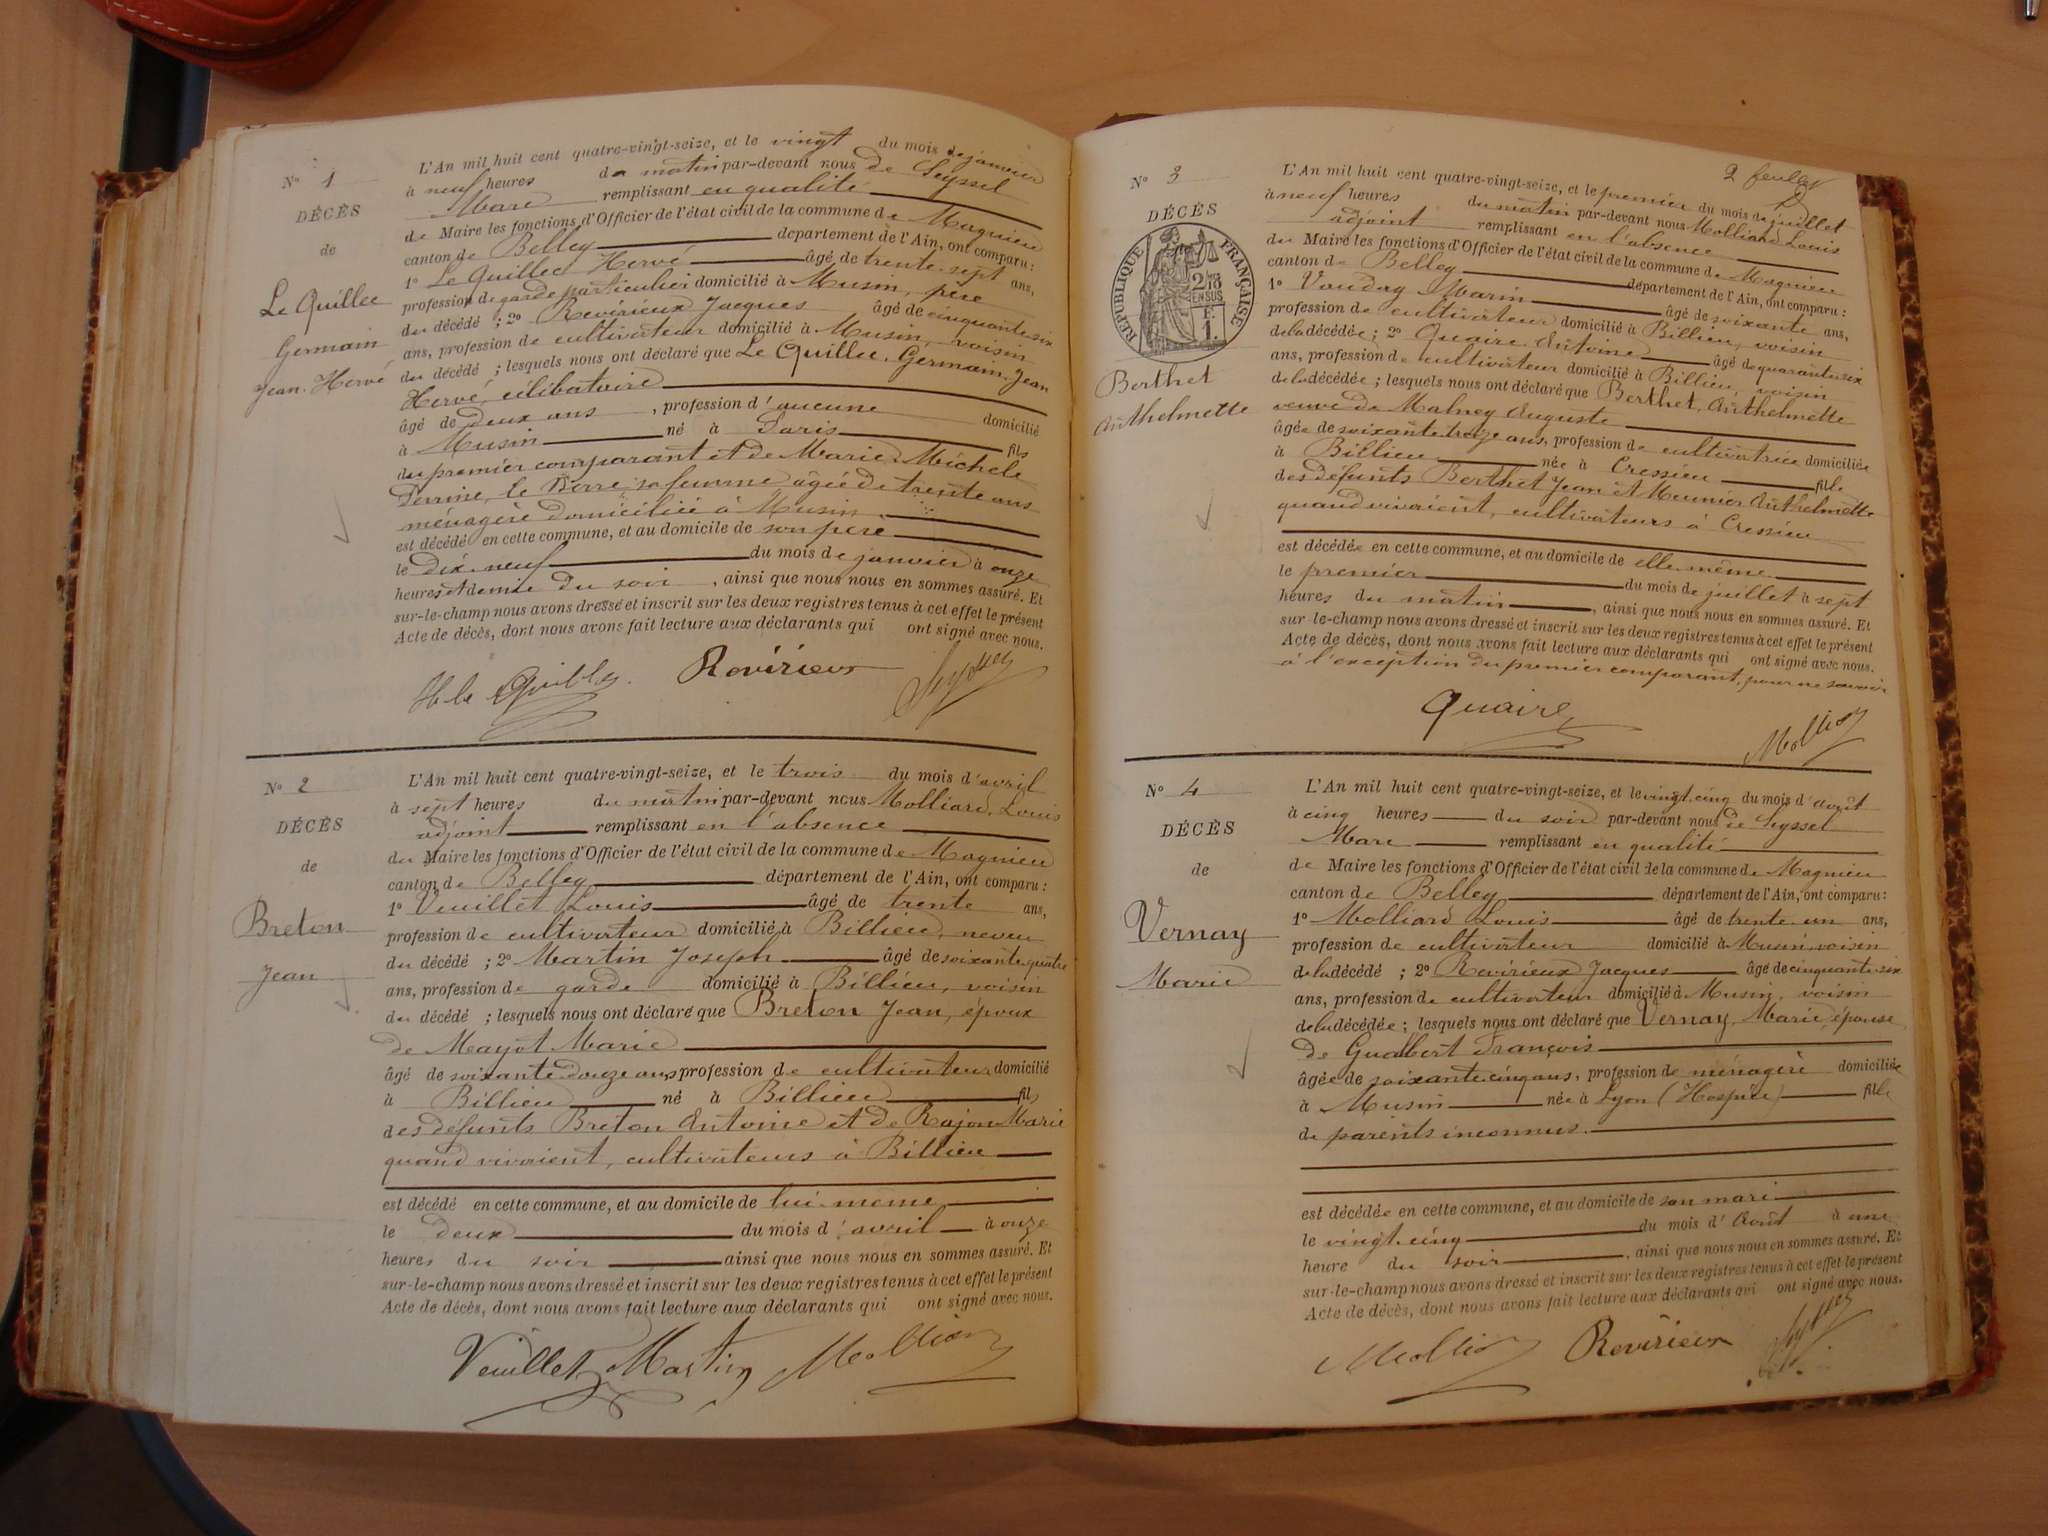 N° 1
DÉCÈS
de
Le Quillec
Germain
Jean-Hervé
L'An mil huit cent quatre-vingt-seize, et le vingt du mois de janvier
à neuf heures du matin par-devant nous de Seyssel
Marc remplissant en qualité
de Maire les fonctions d'Officier de l'état civil de la commune de Magnieu
canton de Belley département de l'Ain, ont comparu :
1° Le Quillec Hervé âgé de trente-sept ans,
profession de garde particulier domicilié à Musin, père
du décédé ; 2° Revirieux Jacques âgé de cinquante-six
ans, profession de cultivateur domicilié à Musin, voisin
du décédé ; lesquels nous ont déclaré que Le Quillec, Germain, Jean
Hervé, célibataire
âgé de deux ans , profession d'aucune domicilié
à Musin né à Paris fils
du premier comparant et de Marie Michele
Perrine, le Berre sa femme âgée de trente ans
ménagère domiciliée à Musin
est décédé en cette commune, et au domicile de son père
le dix-neuf du mois de janvier à onze
heures et demie du soir , ainsi que nous nous en sommes assuré. Et
sur-le-champ nous avons dressé et inscrit sur les deux registres tenus à cet effet le présent
Acte de décès, dont nous avons fait lecture aux déclarants qui ont signé avec nous.
H le Quillec Revirieux
N° 2
DÉCÈS
de
Breton
Jean
L'An mil huit cent quatre-vingt-seize, et le trois du mois d'avril
à sept heures du matin par-devant nous Molliard, Louis
adjoint remplissant en l'absence
du Maire les fonctions d'Officier de l'état civil de la commune de Magnieu
canton de Belley département de l'Ain, ont comparu :
1° Veuillet Louis âgé de trente ans,
profession de cultivateur domicilié à Billieu, neveu
du décédé ; 2° Martin Joseph âgé de soixante-quatre
ans, profession de garde domicilié à Billieu, voisin
du décédé ; lesquels nous ont déclaré que Breton Jean, époux
de Mayot Marie
âgé de soixante-douze ans profession de cultivateur domicilié
à Billieu né à Billieu fils
des défunts Breton Antoine et de Rajon Marie
quand vivaient, cultivateurs à Billieu
est décédé en cette commune, et au domicile de lui-même
le deux du mois d'avril à onze
heure du soir ainsi que nous nous en sommes assuré. Et
sur-le-champ nous avons dressé et inscrit sur les deux registres tenus à cet effet le présent
Acte de décès, dont nous avons fait lecture aux déclarants qui ont signé avec nous.
Veuillet Martin Molliard
2 feuillet
N° 3
DÉCÈS
RÉPUBLIQUE FRANÇAISE
EN SUS
Berthet
Anthelmette
L'An mil huit cent quatre-vingt-seize, et le premier du mois de juillet
à neuf heures du matin par-devant nous Molliard Louis
adjoint remplissant en l'absence
du Maire les fonctions d'Officier de l'état civil de la commune de Magnieu
canton de Belley département de l'Ain, ont comparu :
1° Vauday Marin âgé de soixante ans,
profession de cultivateur domicilié à Billieu, voisin
de la décédée ; 2° Quaire Antoine âgé de quarante-six
ans, profession de cultivateur domicilié à Billieu, voisin
de la décédée ; lesquels nous ont déclaré que Berthet, Anthelmette
veuve de Malney Auguste
âgée de soixante-treize ans, profession de cultivatrice domiciliée
à Billieu née à Cressieu fille
des défunts Berthet Jean et Meunier Anthelmette
quand vivaient, cultivateurs à Cressieu
est décédée en cette commune, et au domicile de elle-même
le premier du mois de juillet à sept
heures du matin , ainsi que nous nous en sommes assuré. Et
sur-le-champ nous avons dressé et inscrit sur les deux registres tenus à cet effet le présent
Acte de décès, dont nous avons fait lecture aux déclarants qui ont signé avec nous.
à l'exception du premier comparant, pour ne savoir
Quaire
N° 4
DÉCÈS
de
Vernay
Marie
L'An mil huit cent quatre-vingt-seize, et le vingt-cinq du mois d'août
à cinq heures du soir par-devant nous de Seyssel
Marc remplissant en qualité
de Maire les fonctions d'Officier de l'état civil de la commune de Magnieu
canton de Belley département de l'Ain, ont comparu :
1° Molliard Louis âgé de trente-un ans,
profession de cultivateur domicilié à Musin voisin
de la décédé ; 2° Revirieux Jacques âgé de cinquante-six
ans, profession de cultivateur domicilié à Musin, voisin
de la décédée ; lesquels nous ont déclaré que Vernay, Marie, épouse
de Gualbert François
âgée de soixante-cinq ans, profession de ménagère domiciliée
à Musin née à Lyon (Hospice) fille
de parents inconnus.
est décédée en cette commune, et au domicile de son mari
le vingt-cinq du mois d'Août à une
heure du soir , ainsi que nous nous en sommes assuré. Et
sur-le-champ nous avons dressé et inscrit sur les deux registres tenus à cet effet le présent
Acte de décès, dont nous avons fait lecture aux déclarants qui ont signé avec nous.
Revirieux